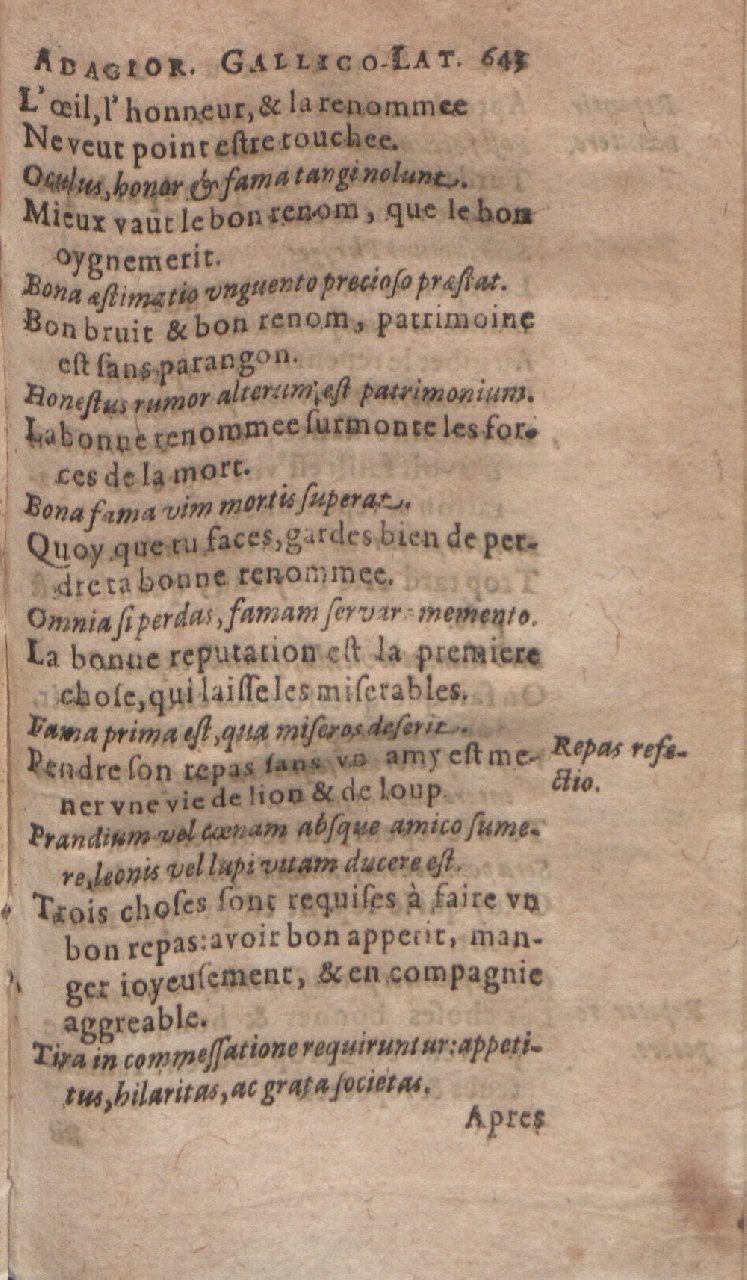 ADAGIOR. GALLICO-LAT. 643
L'œil, l'honneur, & la renommee
Ne veut point estre touchee.
Oculus, honor & fama tangi nolunt.
Mieux vaut le bon renom, que le bon
oygnemerit.
Bona æstimatio vnguento precioso præstat.
Bon bruit & bon renom, patrimoine
est sans parangon.
Honestus rumor alterum est patrimonium.
La bonne renommee surmonte les for-
ces de la mort.
Bona fama vim mortis superat.
Quoy que tu faces, gardes bien de per-
dre ta bonne renommee.
Omnia si perdas, famam servare memento.
La bonne reputation est la premiere
chose, qui laisse les miserables.
Fama prima est, qua miseros deserit.
Pendre son repas sans vn amy est me-
ner vne vie de lion & de loup.
Repas refe-
ctio.
Prandium vel cœnam absque amico sume-
re, leonis vel lupi vitam ducere est.
Trois choses sont requises à faire vn
bon repas: avoir bon appetit, man-
ger ioyeusement, & en compagnie
aggreable.
Tira in commessatione requiruntur: appeti-
tus, hilaritas, ac grata societas.
Apres